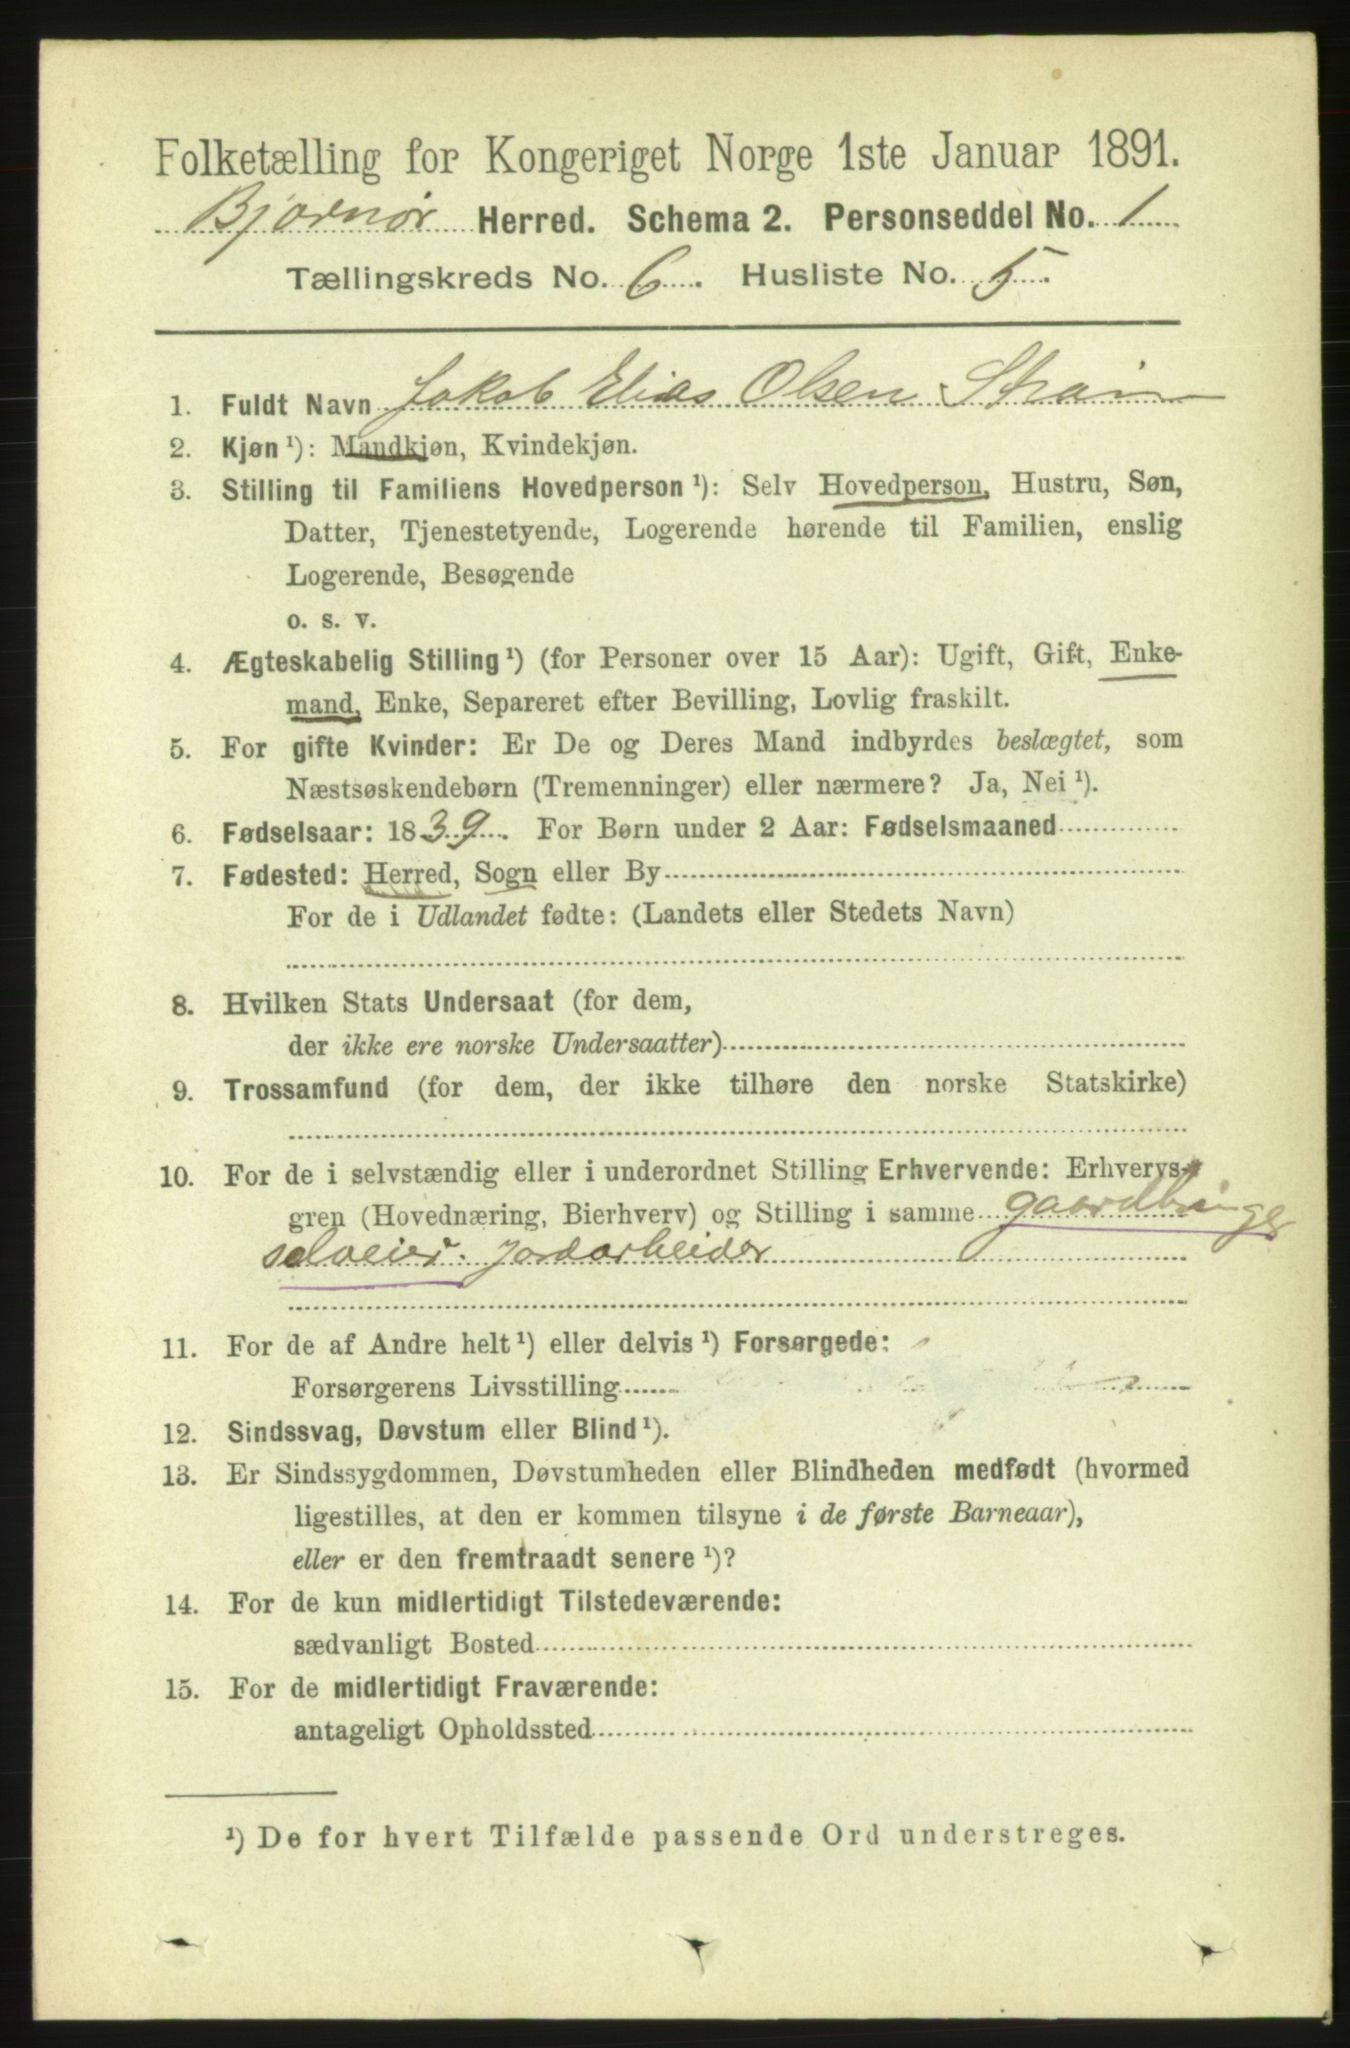 Folketælling for Kongeriget Norge 1ste Januar 1891.
Bjørnør Herred. Schema 2. Personseddel No. 1
Tællingskreds No. 6. Husliste No. 5.
1. Fuldt Navn Jakob Elias Olsen
2. Kjøn ¹): Mandkjøn, Kvindekjøn.
3. Stilling til Familiens Hovedperson ¹): Selv Hovedperson, Hustru, Søn,
Datter, Tjenestetyende, Logerende hørende til Familien, enslig
Logerende, Besøgende
o. s. v.
4. Ægteskabelig Stilling ¹) (for Personer over 15 Aar): Ugift, Gift, Enke-
mand, Enke, Separeret efter Bevilling, Lovlig fraskilt.
5. For gifte Kvinder: Er De og Deres Mand indbyrdes beslægtet, som
Næstsøskendebørn (Tremenninger) eller nærmere? Ja, Nei ¹).
6. Fødselsaar: 1839. For Børn under 2 Aar: Fødselsmaaned
7. Fødested: Herred, Sogn eller By
For de i Udlandet fødte: (Landets eller Stedets Navn)
8. Hvilken Stats Undersaat (for dem,
der ikke ere norske Undersaatter)
9. Trossamfund (for dem, der ikke tilhøre den norske Statskirke)
10. For de i selvstændig eller i underordnet Stilling Erhvervende: Erhvervs-
gren (Hovednæring, Bierhverv) og Stilling i samme gaardbruger
selveier. Jordarbeider
11. For de af Andre helt ¹) eller delvis ¹) Forsørgede:
Forsørgerens Livsstilling
12. Sindssvag, Døvstum eller Blind ¹).
13. Er Sindssygdommen, Døvstumheden eller Blindheden medfødt (hvormed
ligestilles, at den er kommen tilsyne i de første Barneaar),
eller er den fremtraadt senere ¹)?
14. For de kun midlertidigt Tilstedeværende:
sædvanligt Bosted
15. For de midlertidigt Fraværende:
antageligt Opholdssted
¹) De for hvert Tilfælde passende Ord understreges.